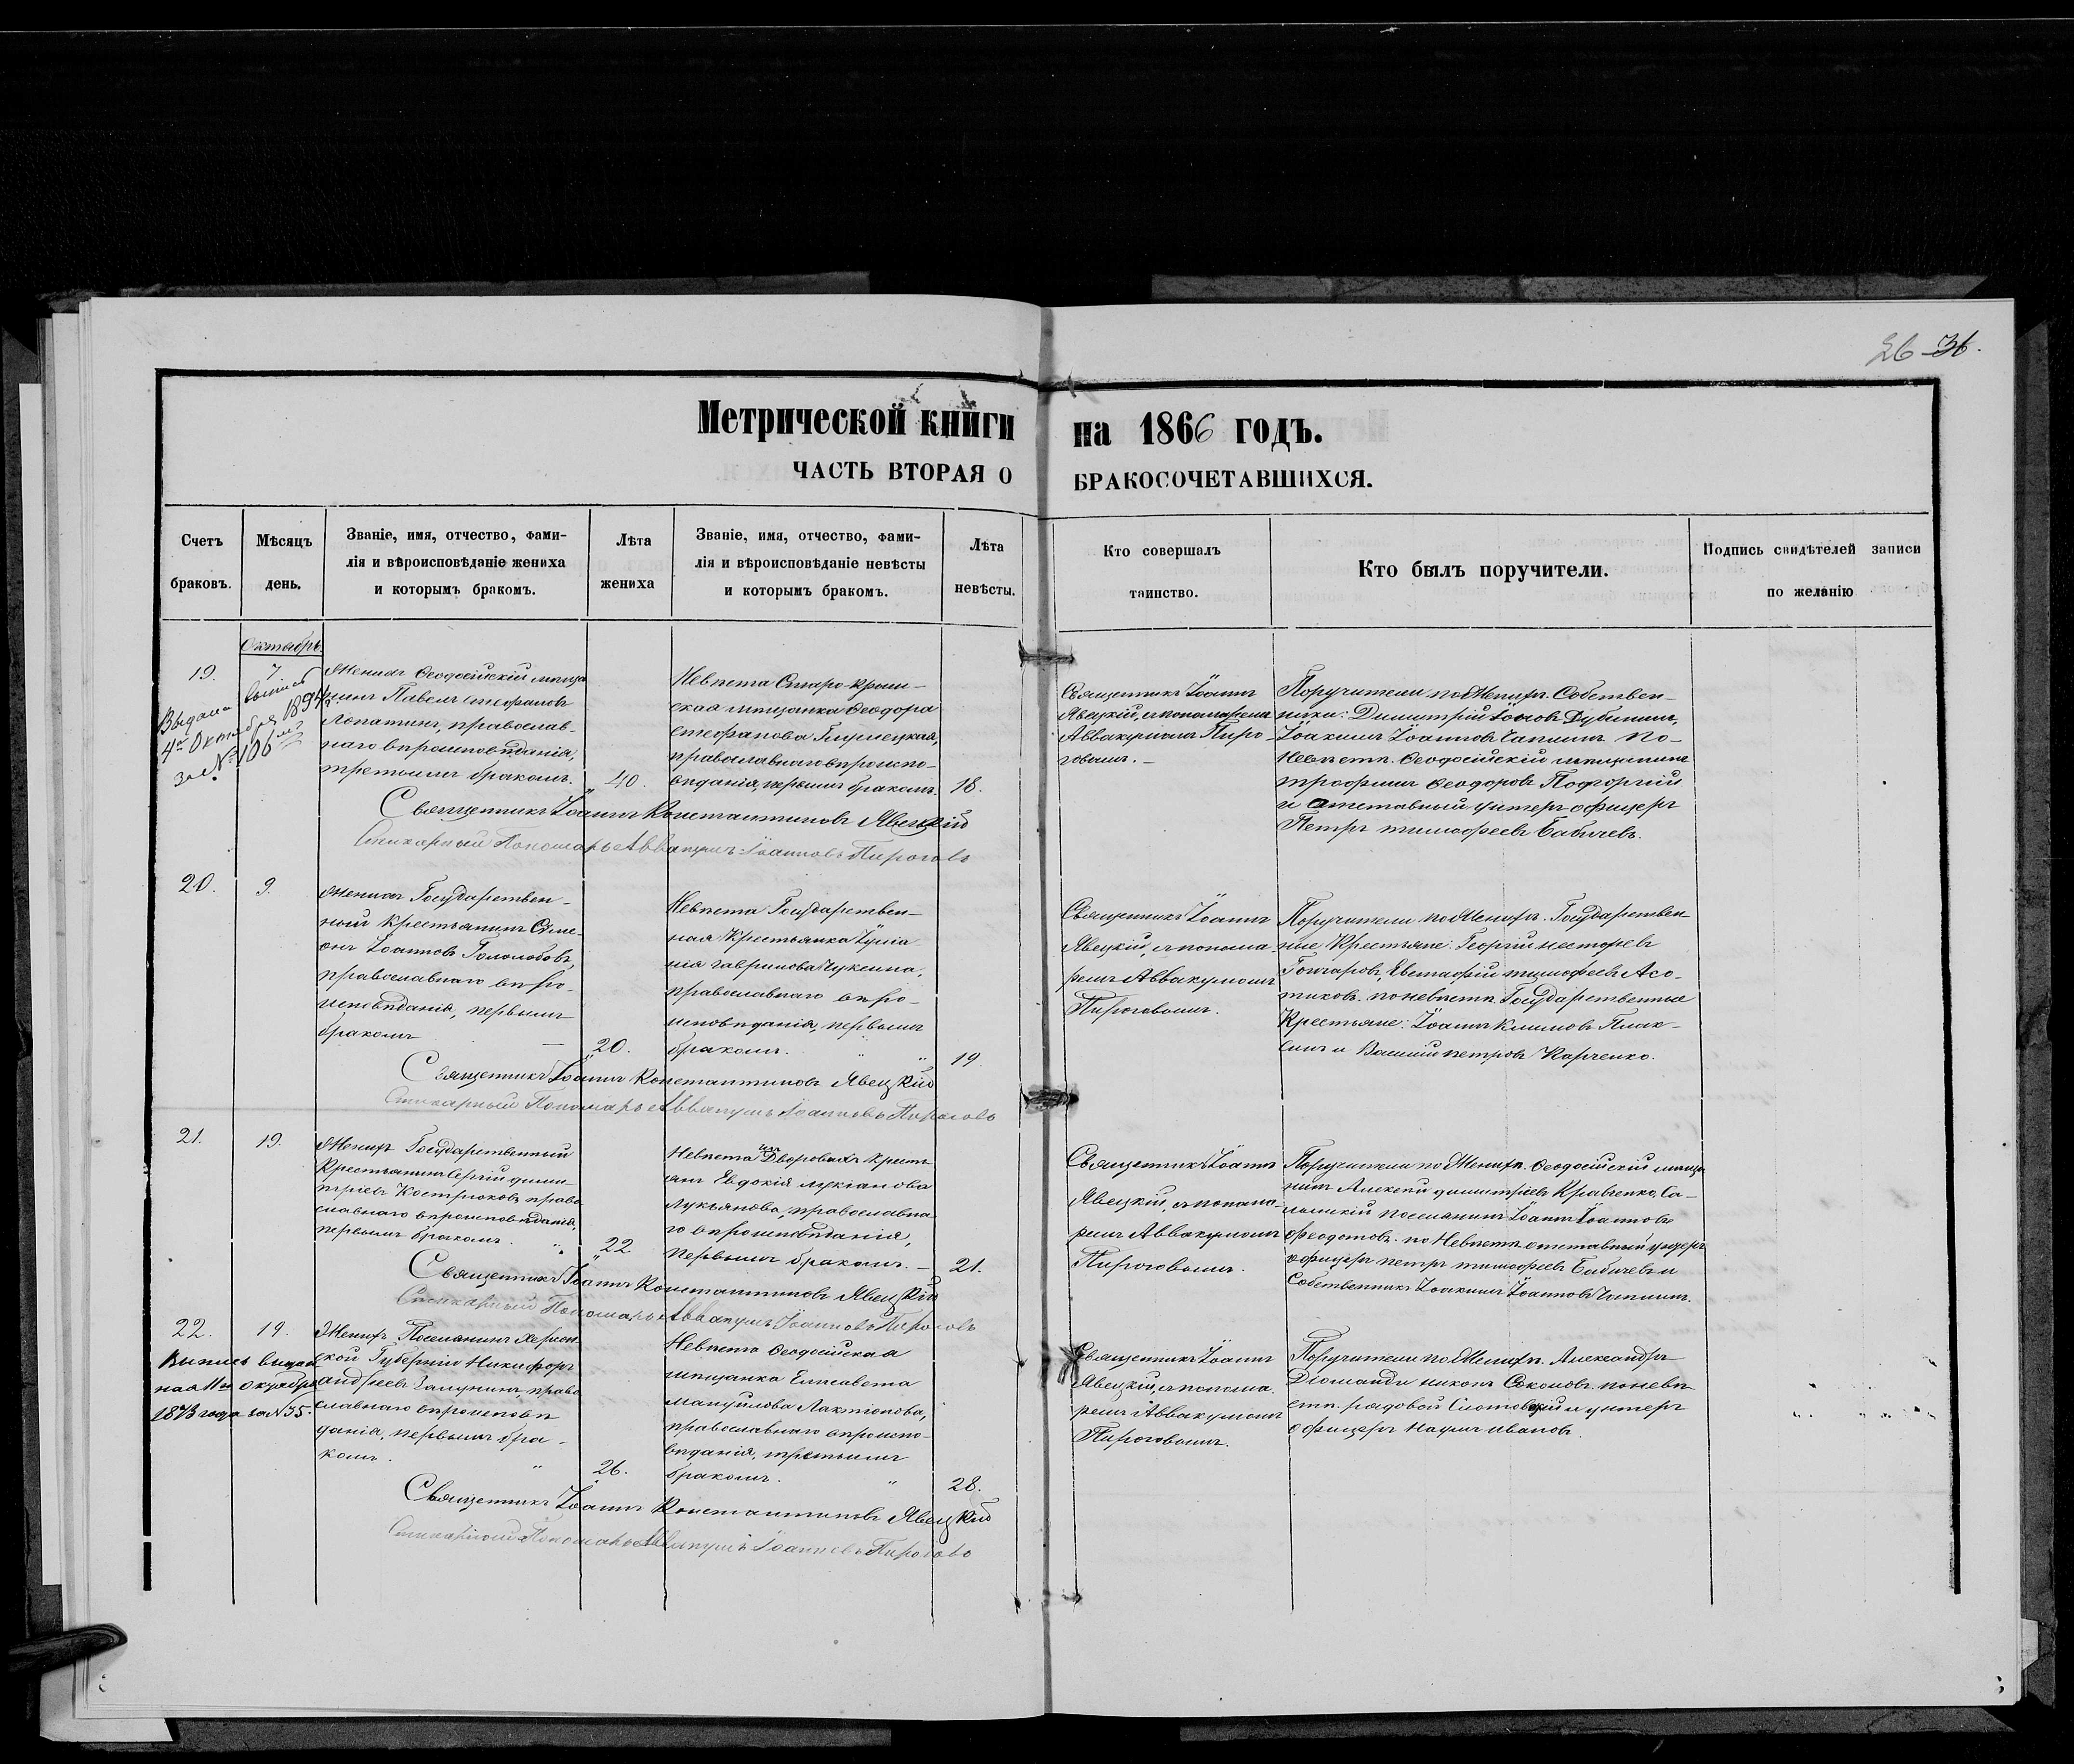 26 36.
Метрической книги на 1866 годъ.
ЧАСТЬ ВТОРАЯ О БРАКОСОЧЕТАВШИХСЯ.
Счетъ браковъ.
Мѣсяцъ день.
Званіе, имя, отчество, фами-
лія и вѣроисповѣданіе жениха
и которымъ бракомъ.
Лѣта жениха
Званіе, имя, отчество, фами-
лія и вѣроисповѣданіе невѣсты
и которымъ бракомъ.
Лѣта невѣсты.
Кто совершалъ
таинство.
Кто былъ поручители.
Подпись свидѣтелей записи
по желанію
Октябрь
19.
7
Выдана выпись
4го Октября 1894 г.
за № 106
Женихъ Ѳеодосійскій мѣща
нинъ Павелъ Стефановъ
Лопатинъ, православ-
наго вѣроисповѣданія,
третьимъ бракомъ.
40.
Невѣста Старо-Крым-
ская мѣщанка Ѳеодора
Стефанова
православнаго вѣроиспо-
вѣданія, первымъ бракомъ.
18.
Священникъ Іоаннъ
Явецкій, съ пономаремъ
Аввакумомъ Пиро-
говымъ.
Поручители по Женихѣ. Собствен-
ники: Димитрій Дубининъ,
Іоакимъ Іоанновъ Чапнинъ по-
Невѣстѣ. Ѳеодосійскій мѣщанинъ
Трофимъ Ѳеодоровъ
и отставный унтеръ офицеръ
Петръ Тимофеевъ Бабичевъ.
Священникъ Іоаннъ Константиновъ Явецкій
Стихарный Пономарь Аввакумъ Іоанновъ Пироговъ
20.
9.
Женихъ Государствен-
ный Крестьянинъ Симе-
онъ Іоанновъ Гололобовъ,
православнаго вѣро-
исповѣданія, первымъ
бракомъ
20.
Невѣста Государствен-
ная Крестьянка Іуліа
нія Гаврилова Чуксина,
православнаго вѣро-
исповѣданія, первымъ
бракомъ.
19.
Священникъ Іоаннъ
Явецкій, съ понома
ремъ Аввакумомъ
Пироговымъ.
Поручители по Женихѣ. Государствен
ные Крестьяне: Георгій Несторевъ
Гончаровъ, Евстафій Тимофеевъ Асо-
тиковъ. по невѣстѣ Государственные
Крестьяне: Іоаннъ Климовъ Плак-
синъ и Василій Петровъ Карченко.
Священникъ Іоаннъ Константиновъ Явецкій
Стихарный Пономарь Аввакумъ Іоанновъ Пироговъ
21.
19.
Женихъ Государственный
Крестьянинъ Сергій Дими
тріевъ Кострюковъ, право
славнаго вѣроисповѣданія,
первымъ бракомъ.
22
Невѣста изъ Дворовыхъ Кресть
янъ Евдокія Лукіанова
Лукьянова, православна
го вѣроисповѣданія,
первымъ бракомъ.
21.
Священникъ Іоаннъ
Явецкій, съ понома-
ремъ Аввакумомъ
Пироговымъ.
Поручители по Женихѣ. Ѳеодосійскій мѣща
нинъ Алексій Димитріевъ Кравченко, Са-
поселянинъ Іоаннъ Іоанновъ
Феодотовъ. по Невѣстѣ отставный унтеръ
офицеръ Петръ Тимофеевъ Бабичевъ и
Собственникъ Іоакимъ Іоанновъ Чапнинъ.
Священникъ Іоаннъ Константиновъ Явецкій
Стихарный Пономарь Аввакумъ Іоанновъ Пироговъ
22.
19.
Выпись выдан
ная 11го Октября
1873 года за № 35.
Женихъ Поселянинъ Херсон
ской Губерніи Никифоръ
Андреевъ право
славнаго вѣроисповѣ
данія, первымъ бра-
комъ.
26.
Невѣста Ѳеодосійская
мѣщанка Елисавета
Мануйлова Лактіонова,
православнаго вѣроиспо-
вѣданія, третьимъ
бракомъ.
28.
Священникъ Іоаннъ
Явецкій, съ понома
ремъ Аввакумомъ
Пироговымъ.
Поручители по Женихѣ. Александръ
Діоманди Никонъ Соколовъ. по невѣ
стѣ. рядовой и унтеръ
офицеръ Наумъ Ивановъ.
Священникъ Іоаннъ Константиновъ Явецкій
Стихарный Пономарь Аввакумъ Іоанновъ Пироговъ